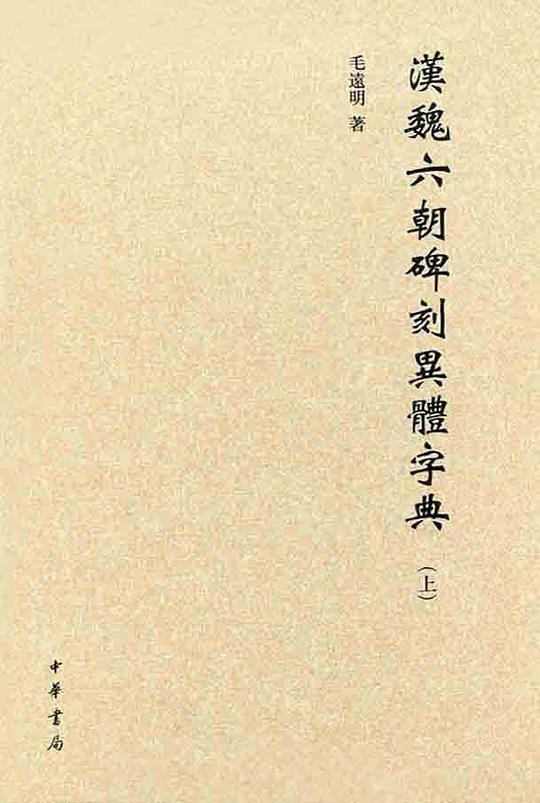 漢魏六朝碑刻異體字典（上）
毛遠明 著
中華書局